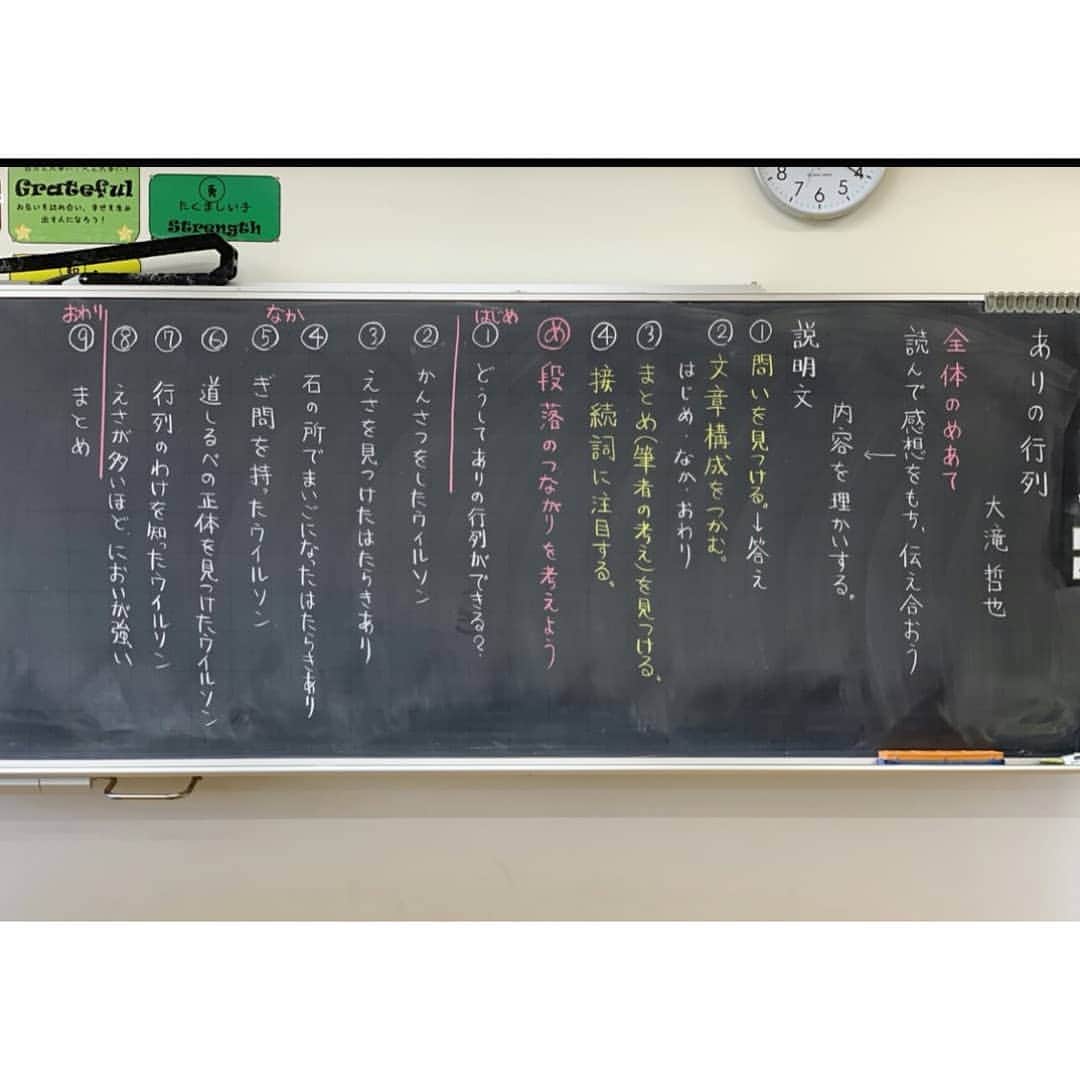 ありの行列
大滝哲也
全体のめあて
読んで感想をもち、伝え合おう
←
内容を理かいする。
説明文
①問いを見つける。→答え
②文章構成をつかむ。
はじめ・なか・おわり
③まとめ(筆者の考え)を見つける。
④接続詞に注目する。
め 段落のつながりを考えよう
はじめ
①どうしてありの行列ができる?
②かんさつをしたウィルソン
③えさを見つけたはたらきあり
なか
④石の所でまいごになったはたらきあり
⑤ぎ問を持ったウイルソン
⑥道しるべの正体を見つけたウイルソン
⑦行列のわけを知ったウイルソン
⑧えさが多いほど、においが強い
おわり
⑨まとめ
Grateful
お互いを認め合い、幸せを生み
出す人になろう!
たくましい子
Strength
8 7 6 5 4